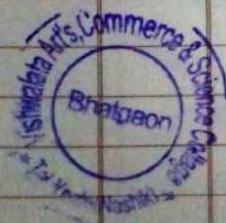 Vishwalata Art's, Commerce & Science College
Bhatgaon
Nashik